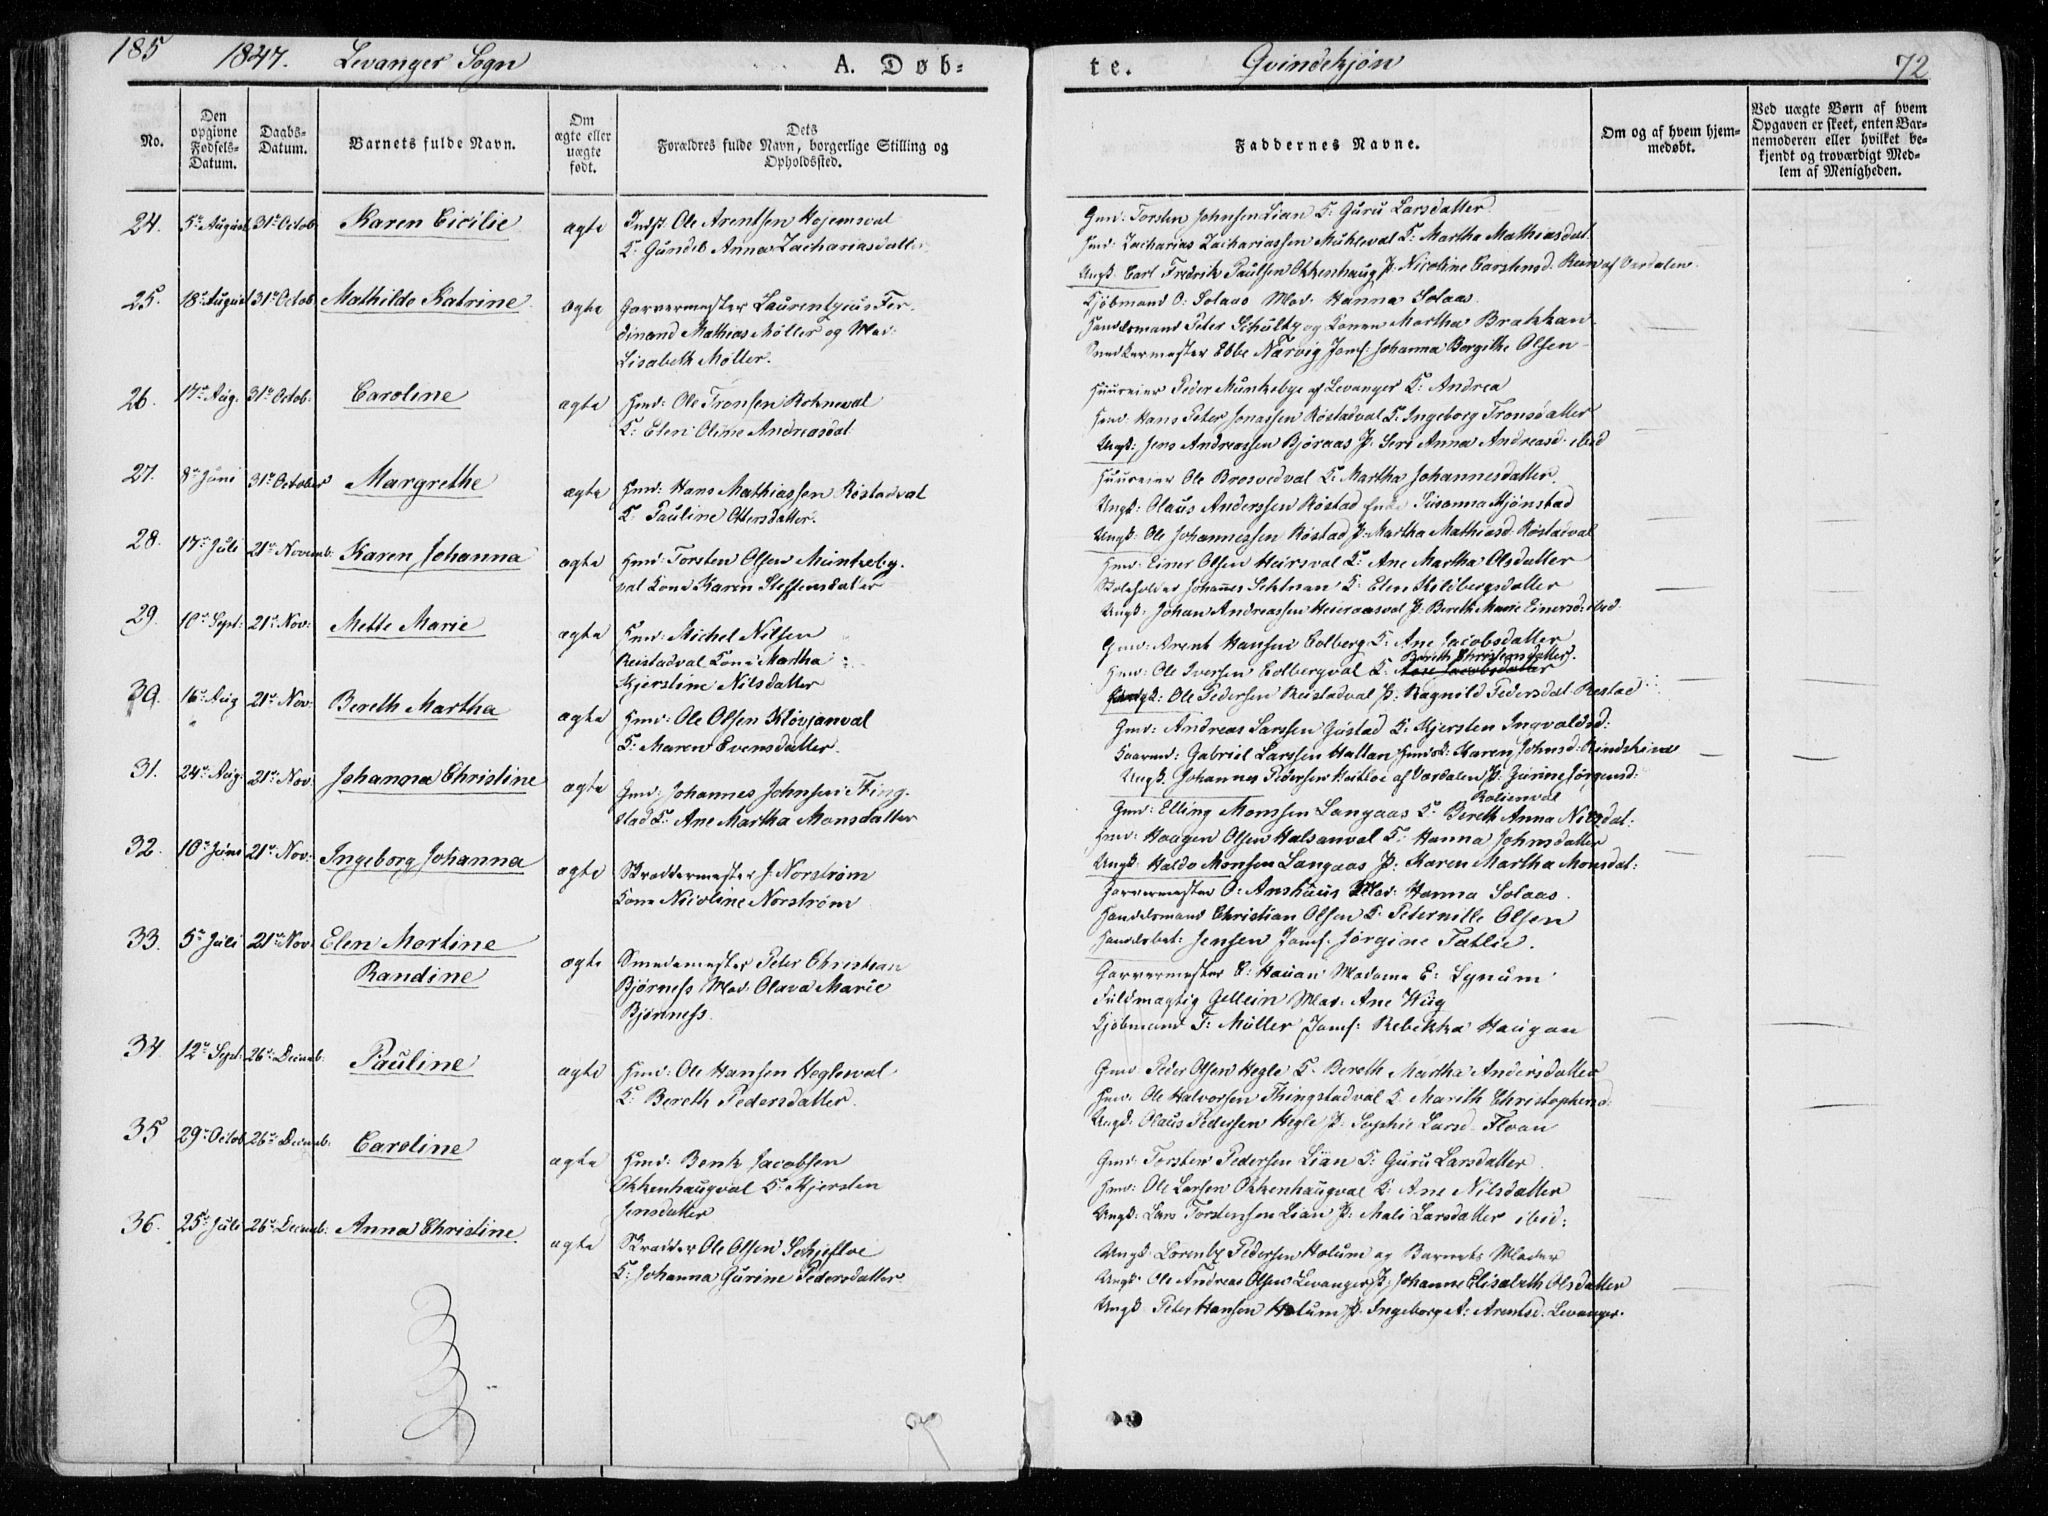 185 1847. Levanger Sogn A. Døb-
te. Qvindekjøn 72
No.
Den opgivne Fødsels-Datum.
Daabs-Datum.
Barnets fulde Navn.
Om ægte eller uægte født.
Dets Forældres fulde Navn, borgerlige Stilling og Opholdssted.
Faddernes Navne.
Om og af hvem hjem-medøbt.
Ved uægte Børn af hvem Opgaven er skeet, enten Bar-nemoderen eller hvilket be-kjendt og troværdigt Med-lem af Menigheden.
24. 5te August 31te Octob: Karen Cicilie ægte
Indst Ole Arentsen Hojemsval
K: Gunild Anna Zachariasdatter
Gmd: Torsten Johnsen Lian K: Guru Larsdatter
Hmd: Zacharias Zachariassen Mühleval K: Martha Mathiasdat.
Ungk: Carl Fredrik Paulsen Okkenhaug P: Nicoline Carstensd. Reen af Værdalen
25. 18de August 31te Octob: Mathilde Katrine ægte
Garvermester Laurentzius Fer-
dinand Mathias Møller og Mad:
Lisabeth Møller.
Kjøbmand O: Solaas Mad. Hanna Solaas
Handelsmand Peter Schultz og Konen Martha Brakkan
Snedkermester Ebbe Narvig Jomf: Johanna Bergithe Olsen
26. 17de Aug. 31te Octob. Caroline ægte
Hmd: Ole Tronsen Rohneval
K: Elen Oline Andreasdat
Huuseier Peder Munkebye af Levanger K: Andrea
Hmd Hans Peter Jonassen Røstadval K: Ingeborg Tronsdatter
Ungk: Jens Andreassen Bjøraas P: Seri Anna Andreasd: ibid
27. 8de Juni 31te October Margrethe ægte
Hmd: Hans Mathiassen Røstadval
K: Pauline Ottersdatter.
Huuseier Ole Brosvedval K: Martha Johannesdatter.
Ungk: Olaus Anderssen Røstad Enke Susanna Hjønstad
Ungk: Ole Johannessen Røstad P: Martha Mathiasd Røstadval
28. 17de Juli 21de Novemb: Karen Johanna ægte
Hmd: Torsten Olsen Munkeby-
val Kone Karen Steffensdatter
Hmd: Einer Olsen Heirsval K: Ane Martha Olsdatter
Skoleholder Johannes Sehlman K: Elen Kildbergsdatter
Ungk: Johan Andreassen Heieraasval P: Bereth Marie Einersd: ibid
29. 10de Sept: 21de Nov: Mette Marie ægte
Hmd: Michel Nilsen
Reistadval Kone Martha
Kjerstine Nilsdatter
Gmd: Arent Hansen Eolberg K: Ane Jacobsdatter
Hmd: Ole Iversen Eolbergval K: Bereth Christensdatter.
Ungk: Ole Pedersen Reistadval P: Ragnild Pedersdat Restad
30. 16de Aug 21de Nov: Bereth Martha ægte
Hmd: Ole Olsen Kløvjanval
K: Maren Evensdatter.
Gmd: Andreas Larssen Gustad K: Kjersten Ingvaldsd:
Kaarmd: Gabriel Larssen Hallan Hmdsk: Karen Johnsd: Rindsheivæ
Ungk. Johannes Pedersen Reitloe af Værdalen P: Gurine Jørgensd:
Rolienval
31. 24de Aug: 21de Nov: Johanna Christine ægte
Gmd: Johannes Johnsen Ting-
stad K: Ane Martha Monsdatter
Gmd: Elling Monssen Langaas K: Bereth Anna Nilsdat:
Hmd: Haagen Olsen Halsanval K: Hanna Johnsdatter
Ungk: Haldo Monsen Langaas P: Karen Martha Monsdat:
32. 10de Juni 21de Nov: Ingeborg Johanna ægte
Skræddermester J. Norstrøm
Kone Nicoline Norstrøm
Garvermester O: Anshuus Mad: Hanna Solaas
Handelsmand Christian Olsen K: Peternille Olsen
Handelsbet: Jensen Jomf. Jørgine Tætlie.
33. 5te Juli 21de Nov: Elen Martine
Randine ægte
Smedemester Peter Christian
Bjørness Mad: Olava Marie
Bjørness.
Garvermester E: Hauan Madame E: Lynum
Fuldmægtig Gellein Mad: Ane Wug
Kjøbmand T: Møller Jomf: Rebekka Haugan
34. 12te Sept: 26de Decemb: Pauline ægte
Hmd: Ole Hansen Hegleval
K: Bereth Pedersdatter.
Gmd Peder Olsen Hegle K. Bereth Martha Andersdatter
Hmd: Ole Halvorsen Thingstadval K Marith Christophersd:
Ungk: Olaus Pedersen Hegle P: Sophie Larsd. Floan
35 29de Octob 26de Decemb: Caroline ægte
Hmd: Bent Jacobsen
Okkenhaugval K: Kjersten
Jensdatter
Gmd: Torsten Pedersen Lian K: Guru Larsdatter
Hmd: Ole Larsen Okkenhaugval K: Ane Nilsdatter
Ungk: Lars Torstensen Lian P: Mali Larsdatter ibid:
36. 25de Juli 26de Decemb: Anna Christine. ægte
Skrædder Ole Olsen Schjefloe
K: Johanna Gurine Pedersdatter
Ungk Lorentz Pedersen Holum og Barnets Moder
Ungk: Ole Andreas Olsen Levanger P: Johanne Elisabeth Olsdatter
Ungk. Peter Hansen Holum P. Ingeborg A: Arentsd: Levanger.